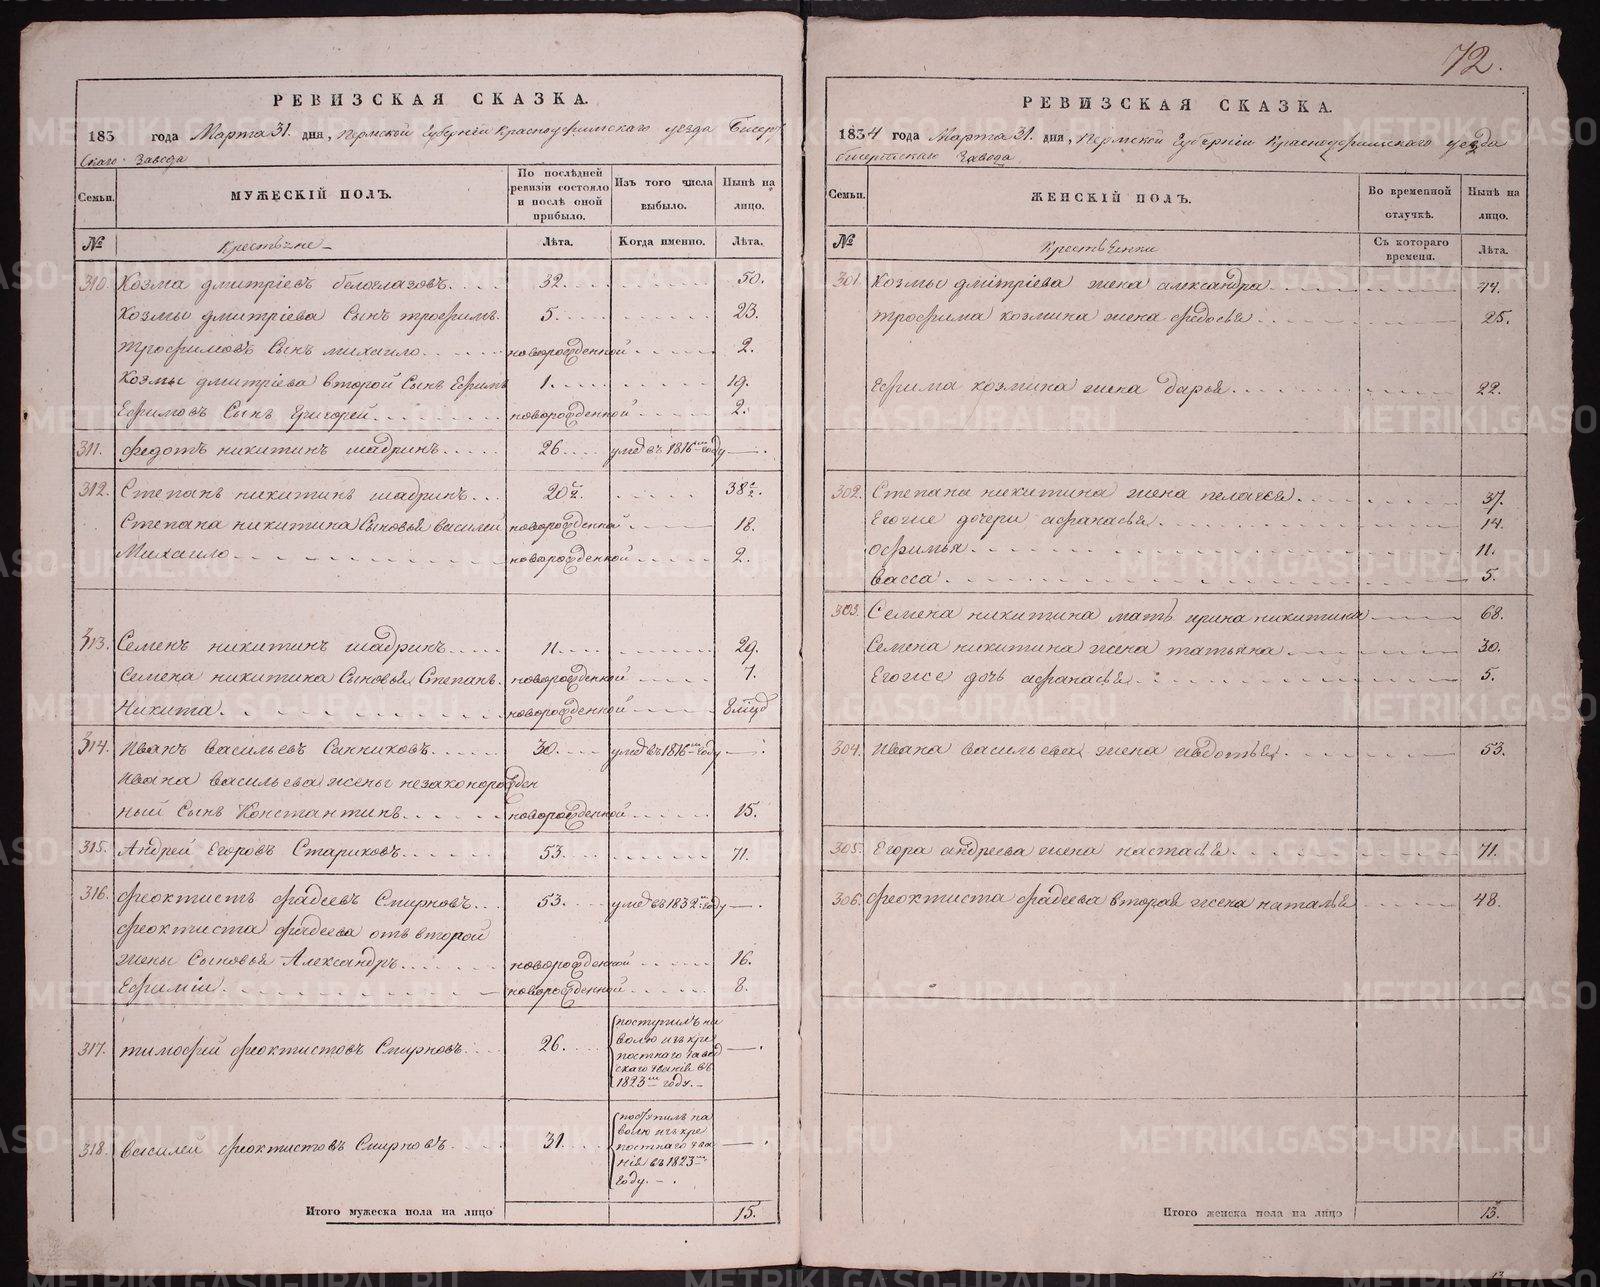 72.
РЕВИЗСКАЯ СКАЗКА.
183 года Марта 31. дня, Пермской Губерніи Красноуфимскаго уезда Бисерт
скаго Завода
Семьи. МУЖЕСКІЙ ПОЛЪ. По послѣдней ревизіи состояло и послѣ оной прибыло. Изъ того числа выбыло. Нынѣ на лицо.
№ Крестьяне Лѣта. Когда именно. Лѣта.
310. Козма дмитріевъ белоглазовъ. 32. 50.
Козмы дмитріева Сынъ трофимъ. 5. 23.
трофимовъ Сынъ михаило новорожденной 2.
Козмы дмитріева второй Сынъ Ефимъ 1. 19.
Ефимовъ Сынъ григорей новорожденной 2.
311. федотъ никитинъ шадринъ 26. умре въ 1816м году —.
312. Степанъ никитинъ шадринъ 20½. 38½.
Степана никитина Сыновья василей новорожденной 18.
Михаило новорожденной 2.
313. Семенъ никитинъ шадринъ 11. 29.
Семена никитина Сыновья Степанъ. новорожденной 7.
Никита. новорожденной 8 мцод
314. Иванъ васильевъ Санниковъ. 30. умре въ 1816м году —.
Ивана васильева жены незаконорожден
ный Сынъ Константинъ. новорожденной 15.
315. Андрей Егоровъ Стариковъ. 53. 71.
316. феоктистъ фадеевъ Смирновъ. 53. умре въ 1832м году —.
феоктиста фадеева отъ второй
жены Сыновья Александръ. новорожденной 16.
Ефиміи. новорожденной 8.
317. тимофей феоктистовъ Смирновъ. 26. поступилъ на
волю изъ кре
постнаго завод
скаго званія въ
1823м году. —.
318. василей феоктистовъ Смирновъ. 31. поступилъ на
волю изъ кре
постнаго зва
нія въ 1823м
году. —.
Итого мужеска пола на лицо 15.
РЕВИЗСКАЯ СКАЗКА.
1834 года Марта 31. дня, Пермской Губерніи Красноуфимскаго уезда
бисертскаго Завода
Семьи. ЖЕНСКІЙ ПОЛЪ. Во временной отлучкѣ. Нынѣ на лицо.
№ Крестьянки Съ котораго времени. Лѣта.
301. Козмы дмітріева жена александра 44.
трофима козмина жена федосья 25.
Ефима козмина жена дарья 22.
302. Степана никитина жена пелагея 37.
Егоже дочери афанасья 14.
офимья 11.
васса 5.
303. Семена никитина мать ирина никитина 68.
Семена никитина жена татьяна 30.
Егоже дочь афанасья 5.
304. Ивана васильева жена авдотья 53.
305. Егора андреева жена настасья 71.
306. феоктиста фадеева вторая жена наталья 48.
Итого женска пола на лицо 13.
METRIKI.GASO-URAL.RU